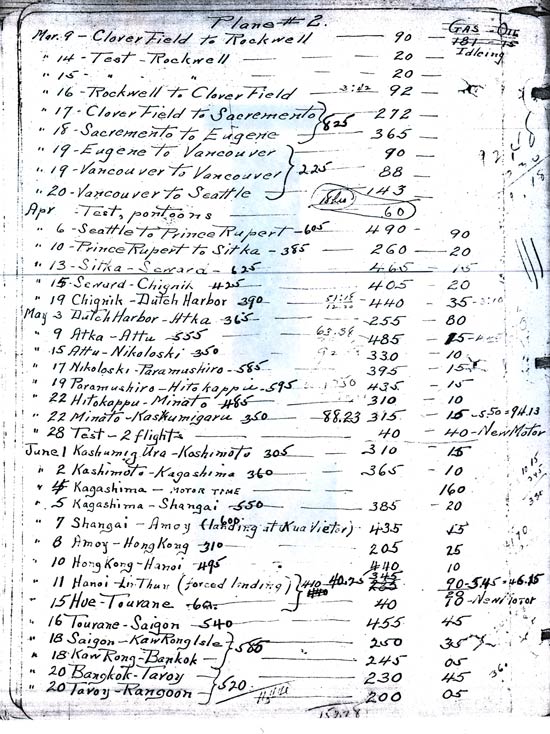 Plane # 2.
Mar. 9 - Clover Field to Rockwell 90 —
" 14 - Test - Rockwell 20 —
" 15 - " " 20 —
" 16 - Rockwell to Clover Field 92 —
" 17 - Clover Field to Sacremento 272 —
825
" 18 - Sacremento to Eugene 365 —
" 19 - Eugene to Vancouver 90 —
" 19 - Vancouver to Vancouver 225 88 —
" 20 - Vancouver to Seattle 143 —
Apr - Test, pontoons 60
" 6 - Seattle to Prince Rupert - 605 490 - 90
" 10 - Prince Rupert to Sitka - 385 260 - 20
" 13 - Sitka - Seward - 625 465 - 15
" 15 Seward - Chignik 425 405 20
" 19 Chignik - Dutch Harbor 390 440 - 35
May 3 Dutch Harbor - Atka 365 255 80
" 9 Atka - Attu - 555 485 15
" 15 Attu - Nikoloski - 350 330 - 10
" 17 Nikoloski - Paramushiro - 585 395 15
" 19 Paramushiro - Hitokappu - 595 435 15
" 22 Hitokappu - Minato 485 310 10
" 22 Minato - Kaskumigaru 350 88.23 315 15 - 5.50 = 94.13
" 28 Test - 2 flights 40 - 40 - New Motor
June 1 Kashumig Ura - Kashimoto 305 310 15
" 2 Kashimoto - Kagashima 360 365 - 10
" 4 Kagashima - MOTOR TIME 160
" 5 Kagashima - Shangai - 550 385 - 20
" 7 Shangai - Amoy (landing at Kua Vietor) 600 435 15
" 8 Amoy - Hong Kong 310 205 25
" 10 Hong Kong - Hanoi 495 440 10
" 11 Hanoi - (forced landing) 410 40.25 345 90 - 5.45 = 46.15
" 15 Hue - Tourane 40 78 - New Motor
" 16 Tourane - Saigon - 540 455 45
" 18 Saigon - Kaw Rong Isle 250 35
580
" 18 Kaw Rong - Bankok 245 05
" 20 Bangkok - Tavoy 230 45
520
" 20 Tavoy - Rangoon 200 05